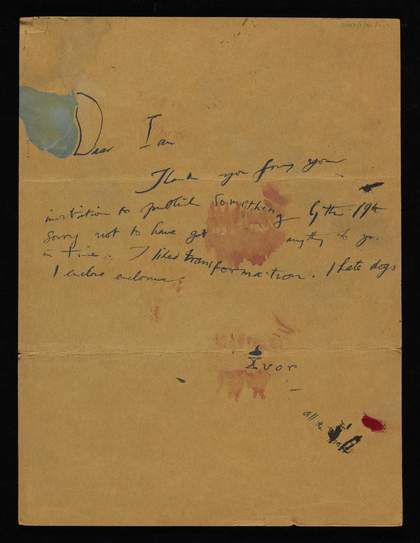 Dear Ian
Thank you for your
invitation to publish something by the 19th
Sorry not to have got anything to you
in time. I liked transformation. I hate dogs
I enclose
Ivor
all the